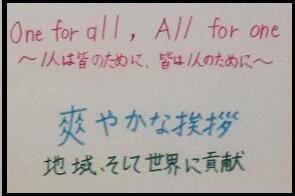 One for all, All for one
～1人は皆のために、皆は1人のために～
爽やかな挨拶
地域、そして世界に貢献